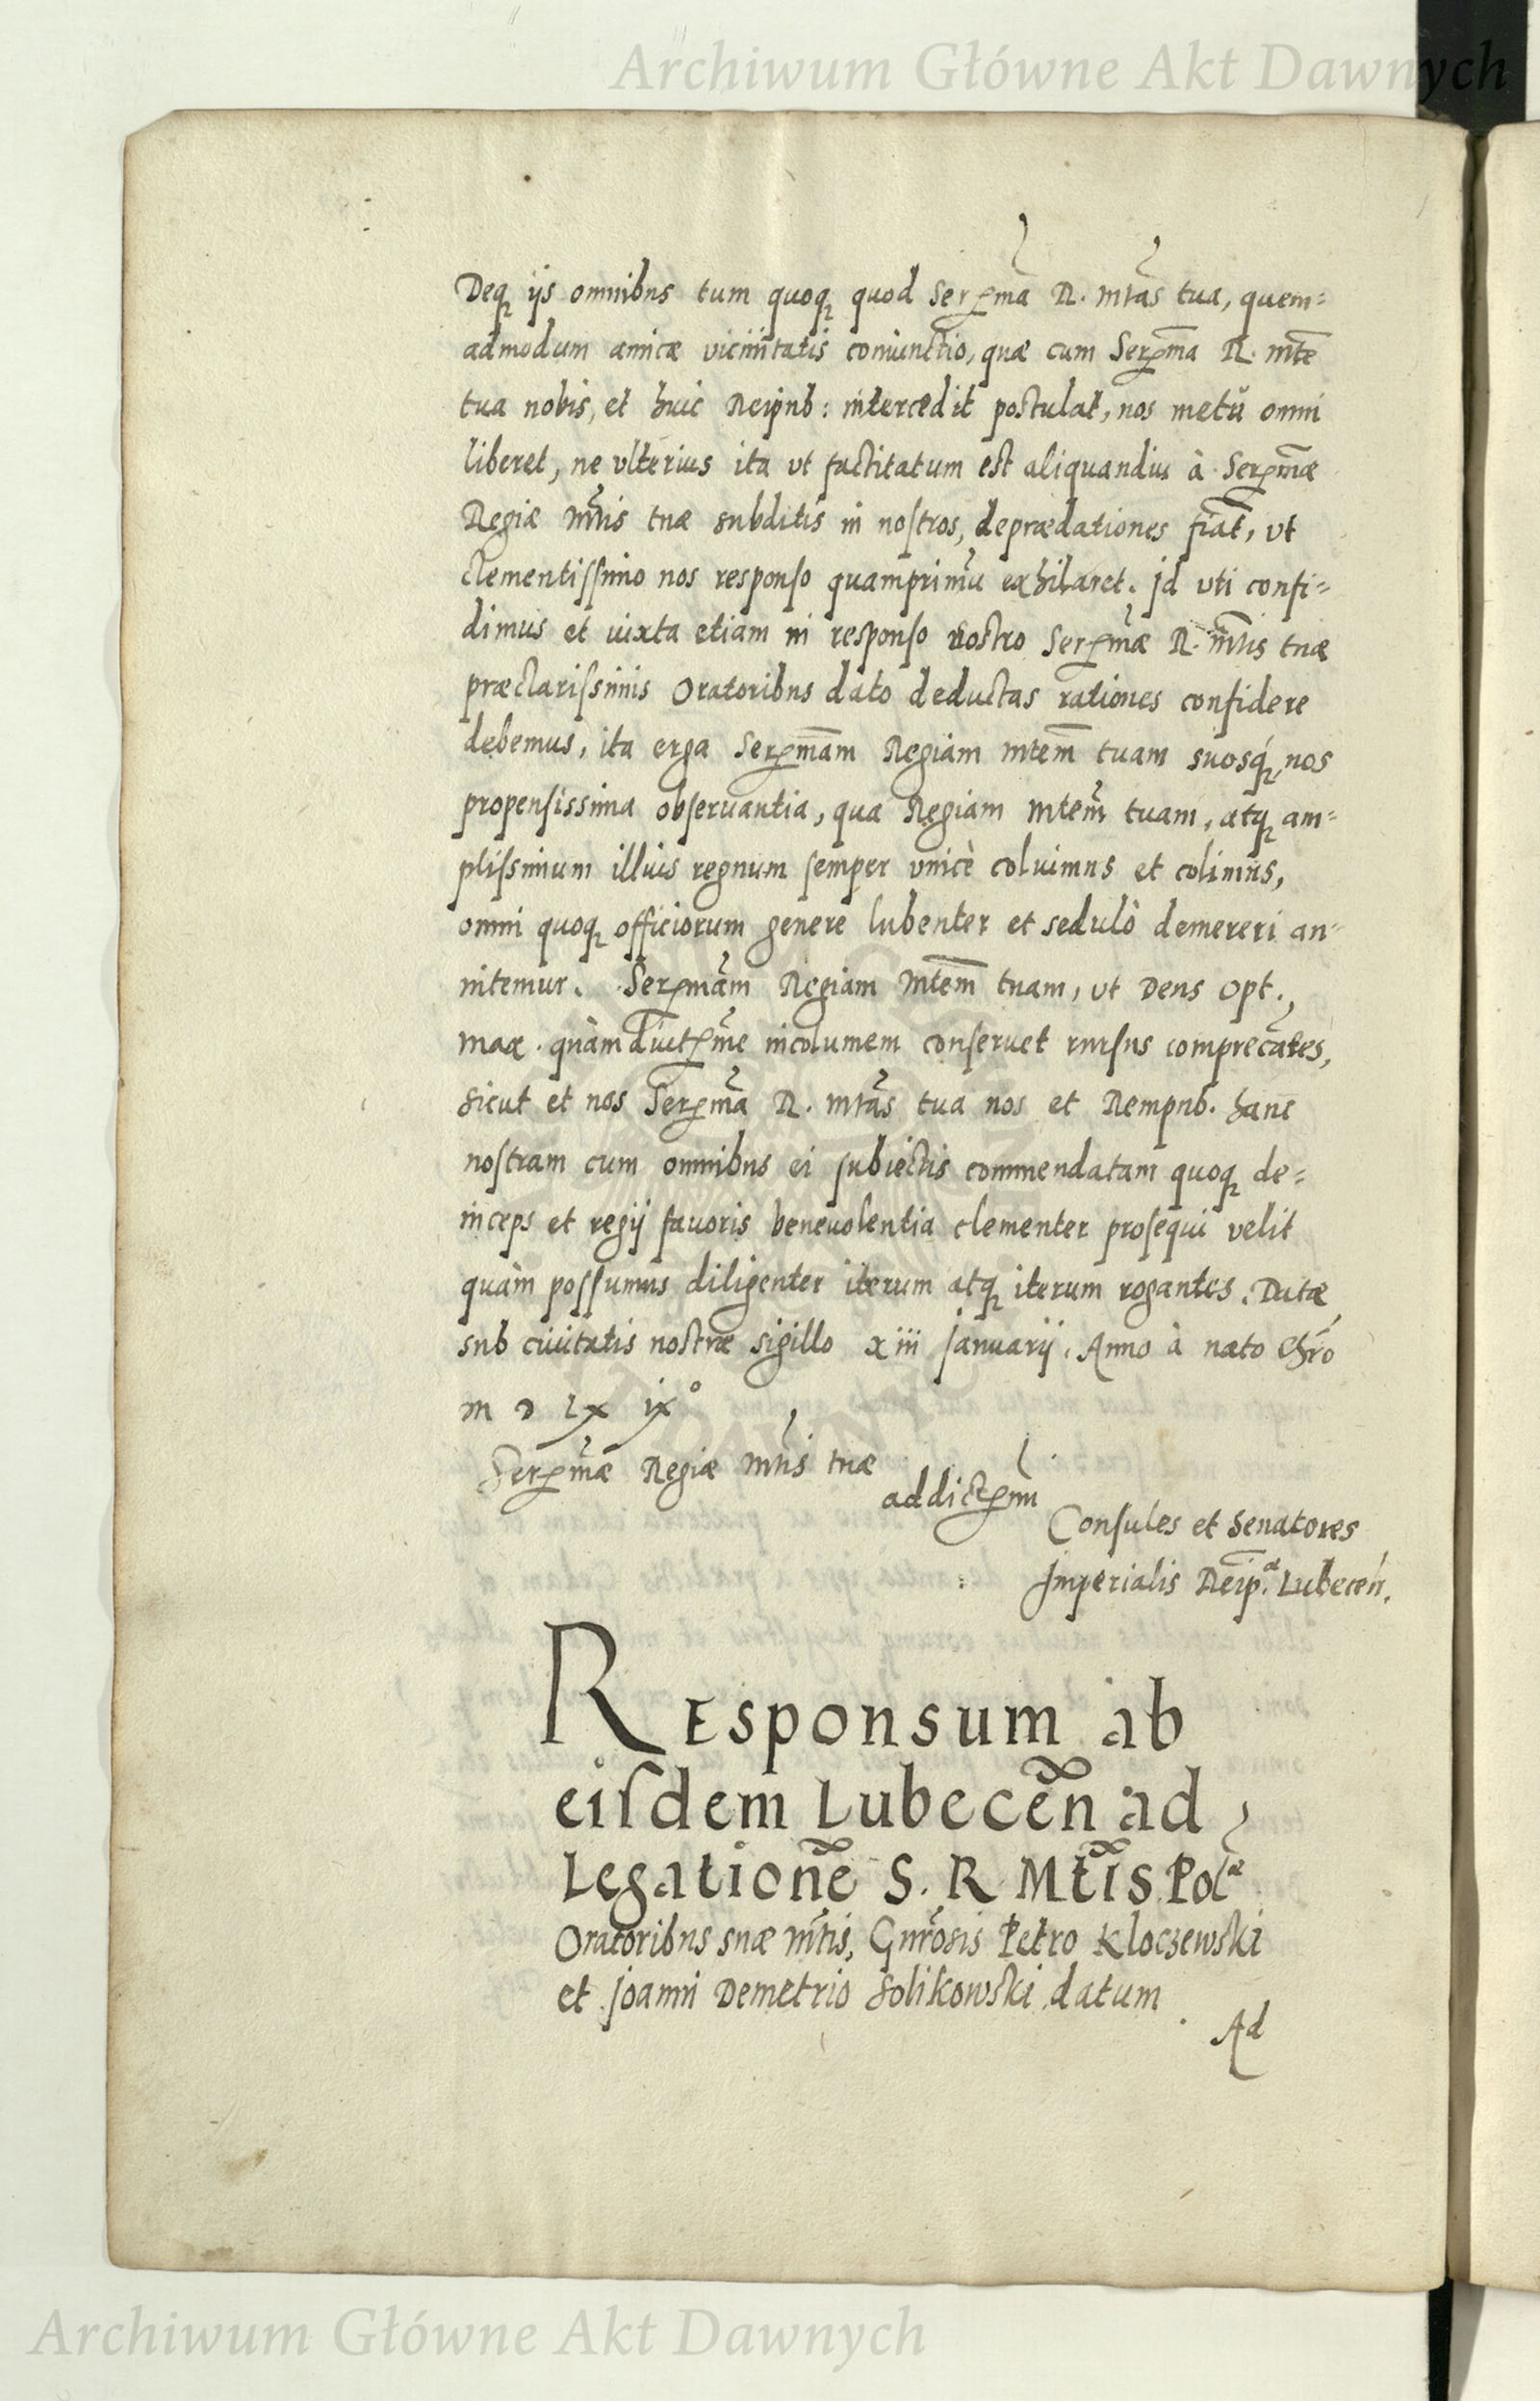 Archiwum Główne Akt Dawnych
Deq́ꝫ ijs omnibus tum quoqꝫ quod Serꝑma R. mtas tua, quem=
admodum amicæ vicinitatis coniunctio, quæ cum Serꝑma R. mte
tua nobis, et huic Reipub: intercedit postulat, nos metū omni
liberet, ne vlterius ita vt factitatum est aliquandiu à Serꝑmæ
Regiæ mtis tuæ subditis in nostros, deprædationes fiāt, vt
clementissimo nos responso quamprimū exhilaret. Jd vti confi=
dimus et iuxta etiam in responso nostro Serꝑmæ R. mtis tuæ
præclarissimis Oratoribus dato deductas rationes confidere
debemus, ita erga Serꝑmam Regiam mtem tuam suosqꝫ nos
propensissima obseruantia, qua Regiam mtem tuam, atqꝫ am=
plissimum illius regnum semper vnicè coluimus et colimus,
omni quoqꝫ officiorum genere lubenter et sedulò demereri an=
nitemur. Serꝑmam Regiam mtem tuam, vt Deus Opt.,
max. quàm diutꝑme incolumem conseruet rursus comprecātes,
sicut et nos Serꝑma R. mtas tua nos et Rempub. hanc
nostram cum omnibus ei subiectis commendatam quoqꝫ de=
inceps et regij fauoris beneuolentia clementer prosequi velit
quàm possumus diligenter iterum atqꝫ iterum rogantes. Datæ
sub ciuitatis nostræ sigillo xiii Januarij. Anno à nato Chro
m D Lx ix°
Serꝑmæ Regiæ mtis tuæ
addictꝑmi
Consules et Senatores
Jmperialis Reip.æ Lubecen̄.
Responsum ab
eisdem Lubecen̄ ad
Legationē S. R Mtis Pol.æ
Oratoribus suæ mtis, Gnrosis Petro Kloczewski
et Joanni Demetrio Solikowski datum.
Ad
Archiwum Główne Akt Dawnych